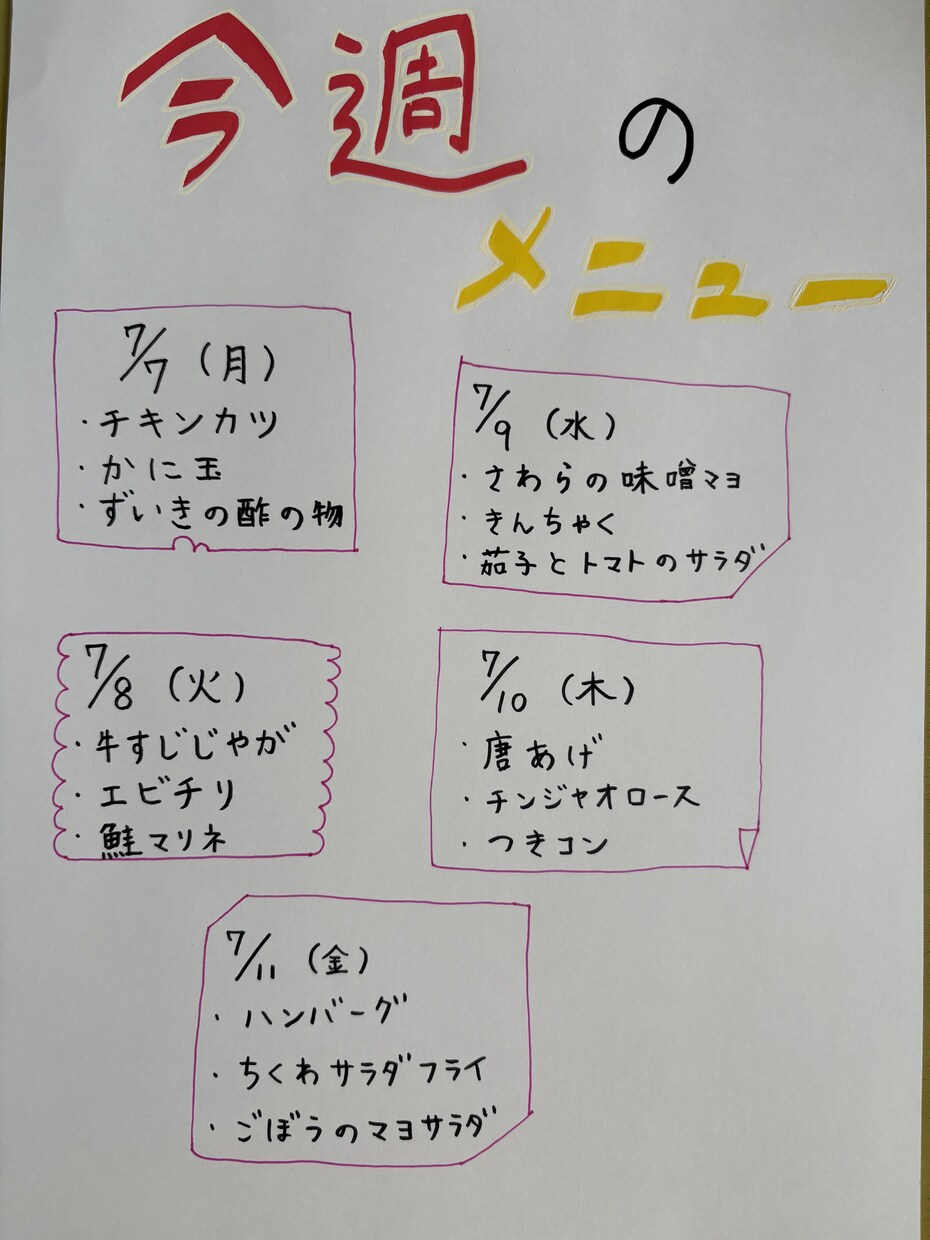 今週の
メニュー
7/7（月）
・チキンカツ
・かに玉
・ずいきの酢の物
7/8（火）
・牛すじじゃが
・エビチリ
・鮭マリネ
7/9（水）
・さわらの味噌マヨ
・きんちゃく
・茄子とトマトのサラダ
7/10（木）
・唐あげ
・チンジャオロース
・つきコン
7/11（金）
・ハンバーグ
・ちくわサラダフライ
・ごぼうのマヨサラダ